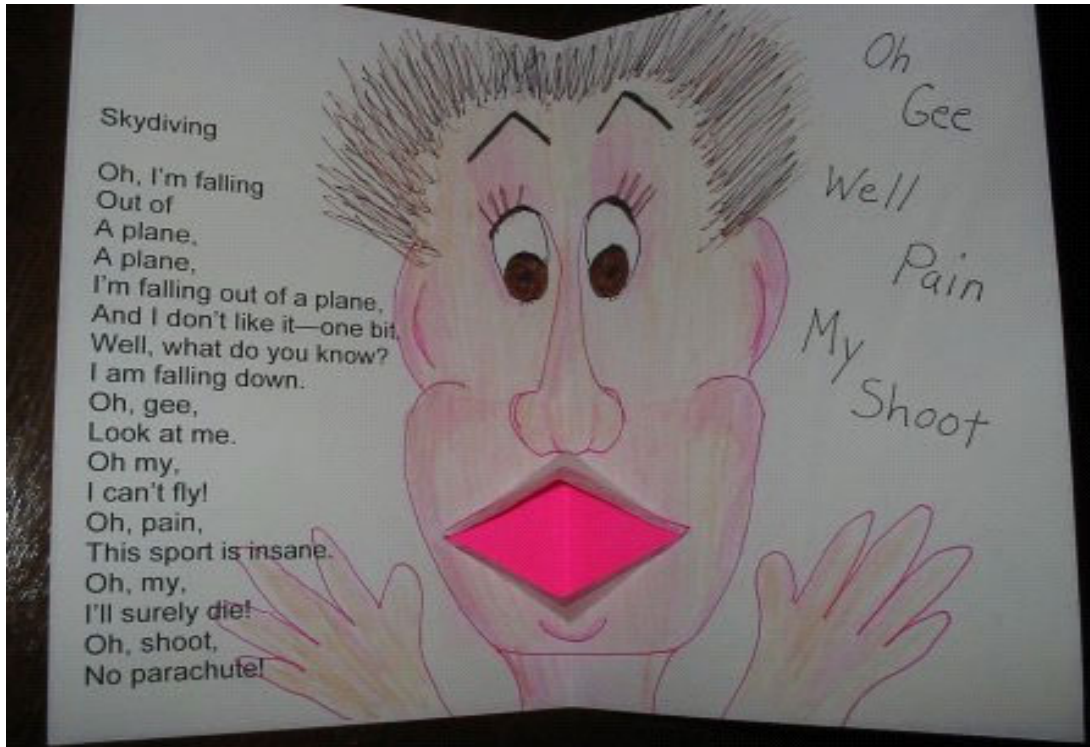 Skydiving
Oh, I'm falling
Out of
A plane,
A plane,
I'm falling out of a plane,
And I don't like it—one bit,
Well, what do you know?
I am falling down.
Oh, gee,
Look at me.
Oh my,
I can't fly!
Oh, pain,
This sport is insane.
Oh, my,
I'll surely die!
Oh, shoot,
No parachute!
Oh
Gee
Well
Pain
My
Shoot